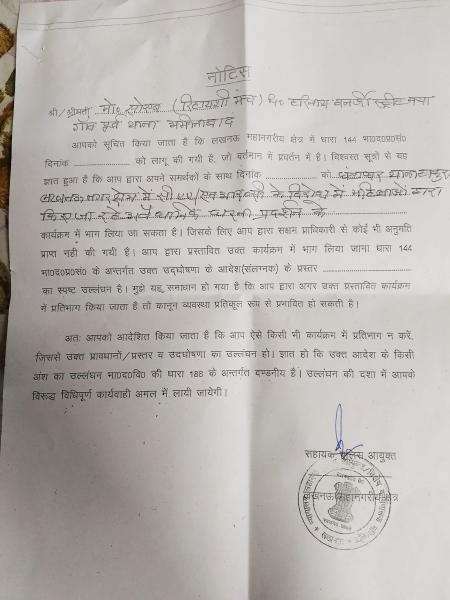 नोटिस
श्री/श्रीमती मो० शोएब (रिहायशी मंच)
थाना अमीनाबाद
आपको सूचित किया जाता है कि लखनऊ महानगरीय क्षेत्र में धारा 144 भा०द०प्र०सं०
दिनांक .................. को लागू की गयी है, जो वर्तमान में प्रवर्तन में है। विश्वस्त सूत्रों से यह
ज्ञात हुआ है कि आप द्वारा अपने समर्थकों के साथ दिनांक .................. को घंटाघर
में सी०ए०ए० के विरोध में महिलाओं द्वारा
किए जा रहे धरना प्रदर्शन के
कार्यक्रम में भाग लिया जा सकता है। जिसके लिए आप द्वारा सक्षम प्राधिकारी से कोई भी अनुमति
प्राप्त नही की गयी है। आप द्वारा प्रस्तावित उक्त कार्यक्रम में भाग लिया जाना धारा 144
भा०द०प्र०सं० के अन्तर्गत उक्त उद्घोषणा के आदेश(संलग्नक) के प्रस्तर ..................
का स्पष्ट उल्लंघन है। मुझे यह समाधान हो गया है कि आप द्वारा अगर उक्त प्रस्तावित कार्यक्रम
में प्रतिभाग किया जाता है तो कानून व्यवस्था प्रतिकूल रूप से प्रभावित हो सकती है।
अतः आपको आदेशित किया जाता है कि आप ऐसे किसी भी कार्यक्रम में प्रतिभाग न करें,
जिससे उक्त प्रावधानों/प्रस्तर व उदघोषणा का उल्लंघन हो। ज्ञात हो कि उक्त आदेश के किसी
अंश का उल्लंघन भा०द०वि० की धारा 188 के अन्तर्गत दण्डनीय है। उल्लंघन की दशा में आपके
विरूद्ध विधिपूर्ण कार्यवाही अमल में लायी जायेगी।
सहायक पुलिस आयुक्त
लखनऊ महानगरीय क्षेत्र